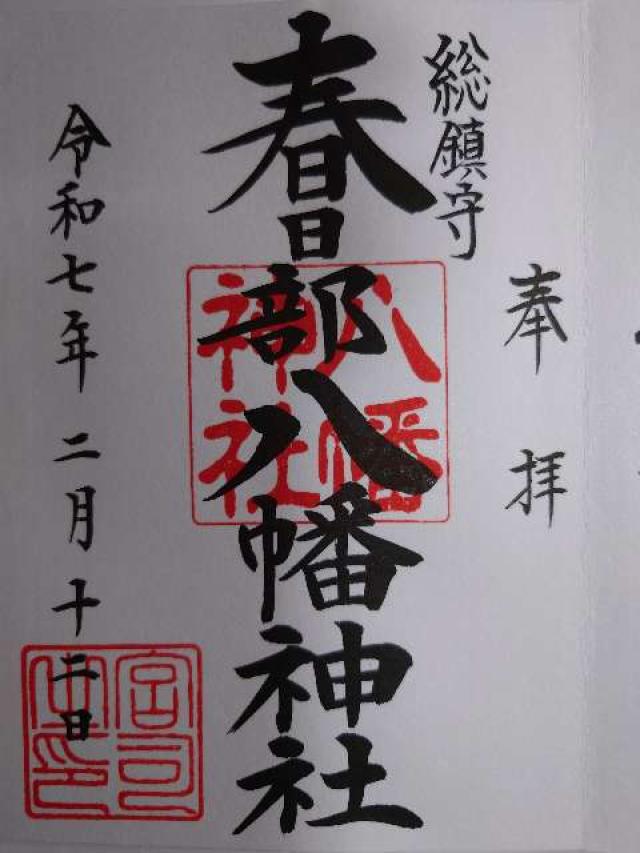 奉拝
総鎮守
春日部八幡神社
八幡神社
令和七年二月十二日
宮司之印